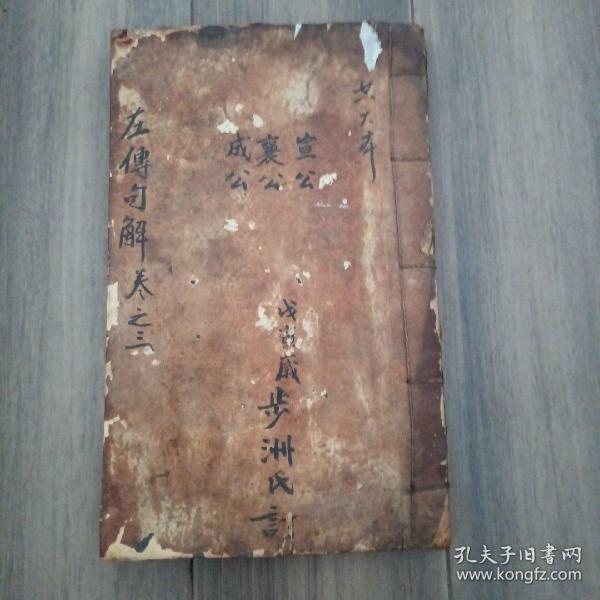 共六本
宣公
襄公
成公
戊寅歲步洲氏訂
左傳句解卷之三
孔夫子旧书网
www.kongfz.com